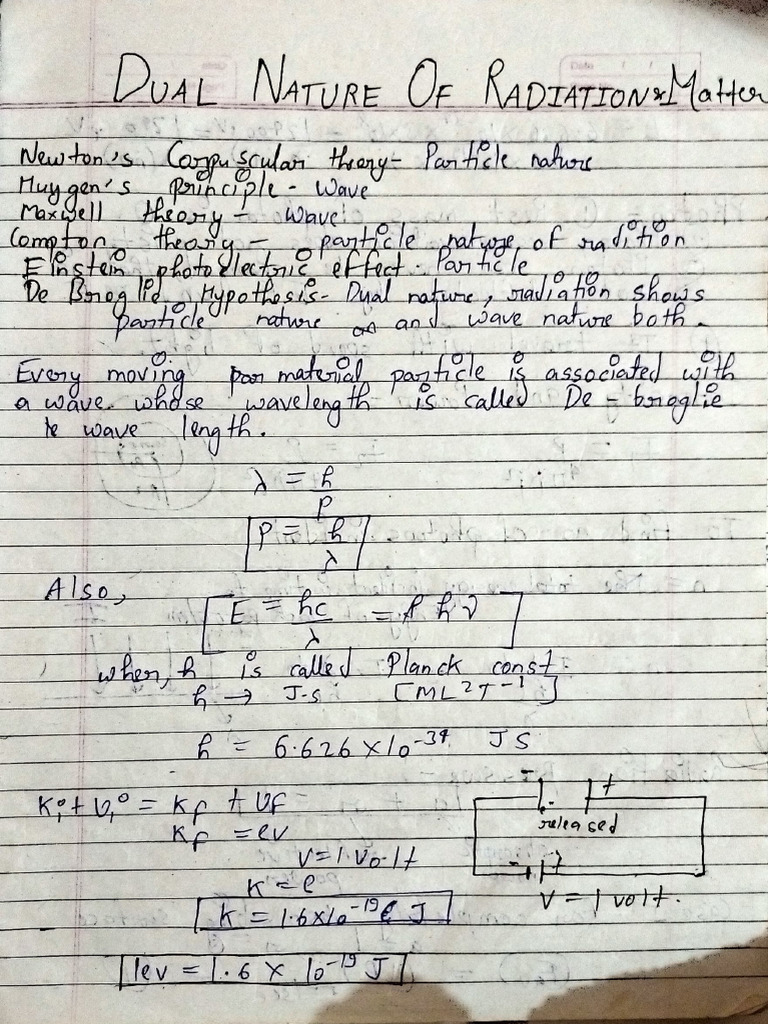 DUAL NATURE OF RADIATION & Matter
Newton's Corpuscular theory - Particle nature
Huygen's principle - wave
Maxwell theory - wave
Compton theory - particle nature of radition
Einstein photoelectric effect - Particle
De Broglie Hypothesis - Dual nature, radiation shows
particle nature and wave nature both.
Every moving material particle is associated with
a wave whose wavelength is called De-broglie
wave length.
λ = h/p
P = h/λ
Also,
E = hc/λ = hν
wher, h is called Planck const.
h → J-s [ML²T⁻¹]
h = 6.626 × 10⁻³⁴ JS
Ki + Ui = Kf + Uf
Kf = ev
V = 1 volt
K = e
K = 1.6×10⁻¹⁹ J
1ev = 1.6 × 10⁻¹⁹ J
- +
released
- +
V = 1 volt.